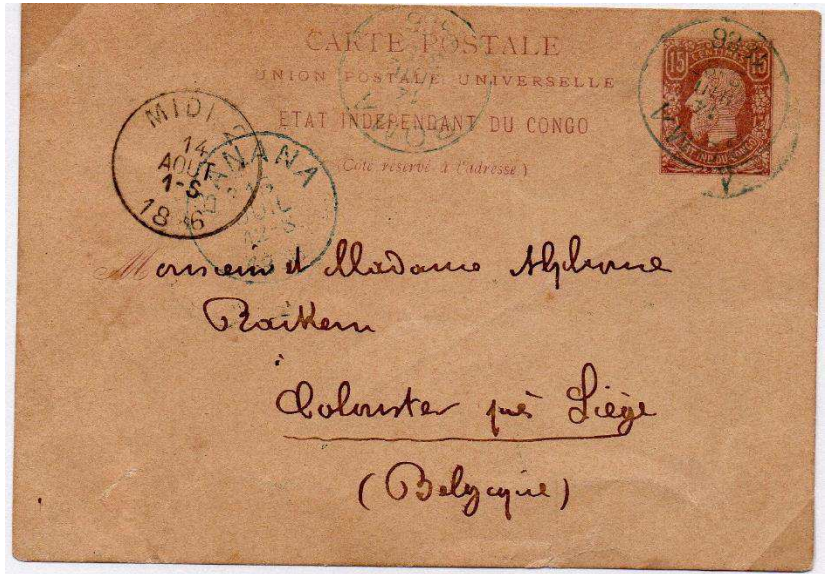 CARTE POSTALE
UNION POSTALE UNIVERSELLE
ETAT INDEPENDANT DU CONGO
(Côté réservé à l'adresse)
15 CENTIMES 15
MIDI
14
AOUT
1-S
18 6
BANANA
Monsieur et Madame Alphonse
Raikem
à
Colonster près Liège
(Belgique)